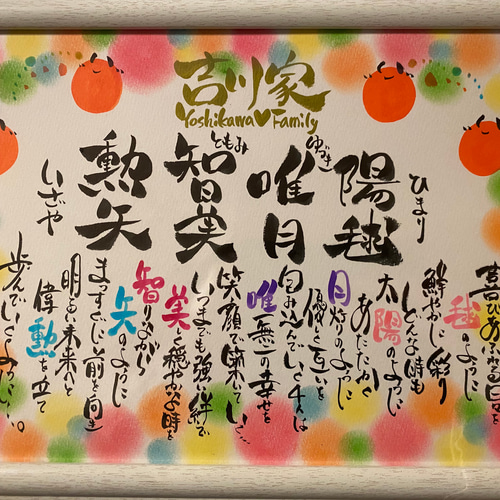 吉川家
Yoshikawa♥Family
ひまり
陽毬
ゆづき
唯月
ともみ
智美
いざや
勲矢
喜びあふれる日を
毬のように
鮮やかに彩り
どんな時も
太陽のように
あたたかく
月灯りのように
優しく互いを
包み込んでいく4人は
唯一無二の幸せを
笑顔で築いていく…
いつまでも強い絆で
美しく穏やかな時を
智りながら
矢のように
まっすぐに前を向き
明るい未来へと
偉勲を立て
歩んでいくでしょう…。